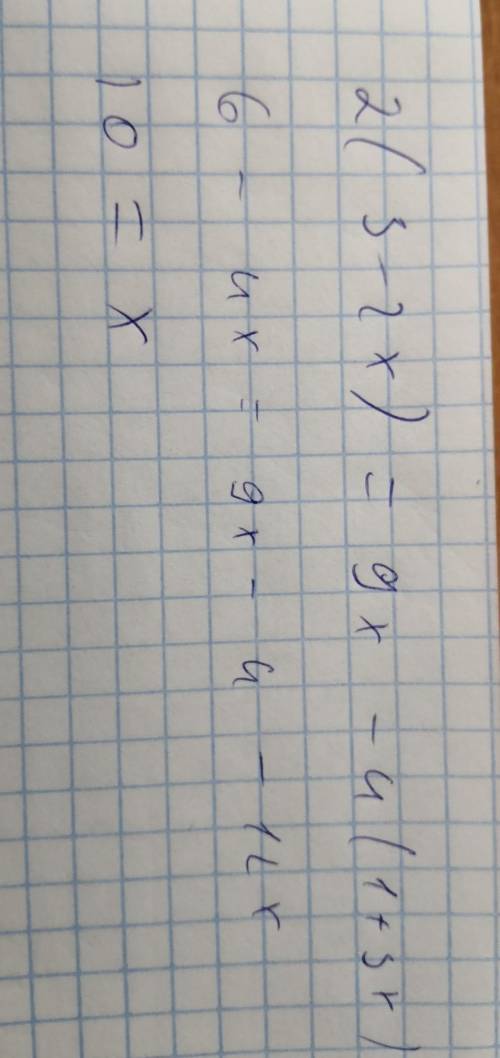 2(3-2x)=9x-4(1+3x)
6-4x=9x-4-12x
10=x